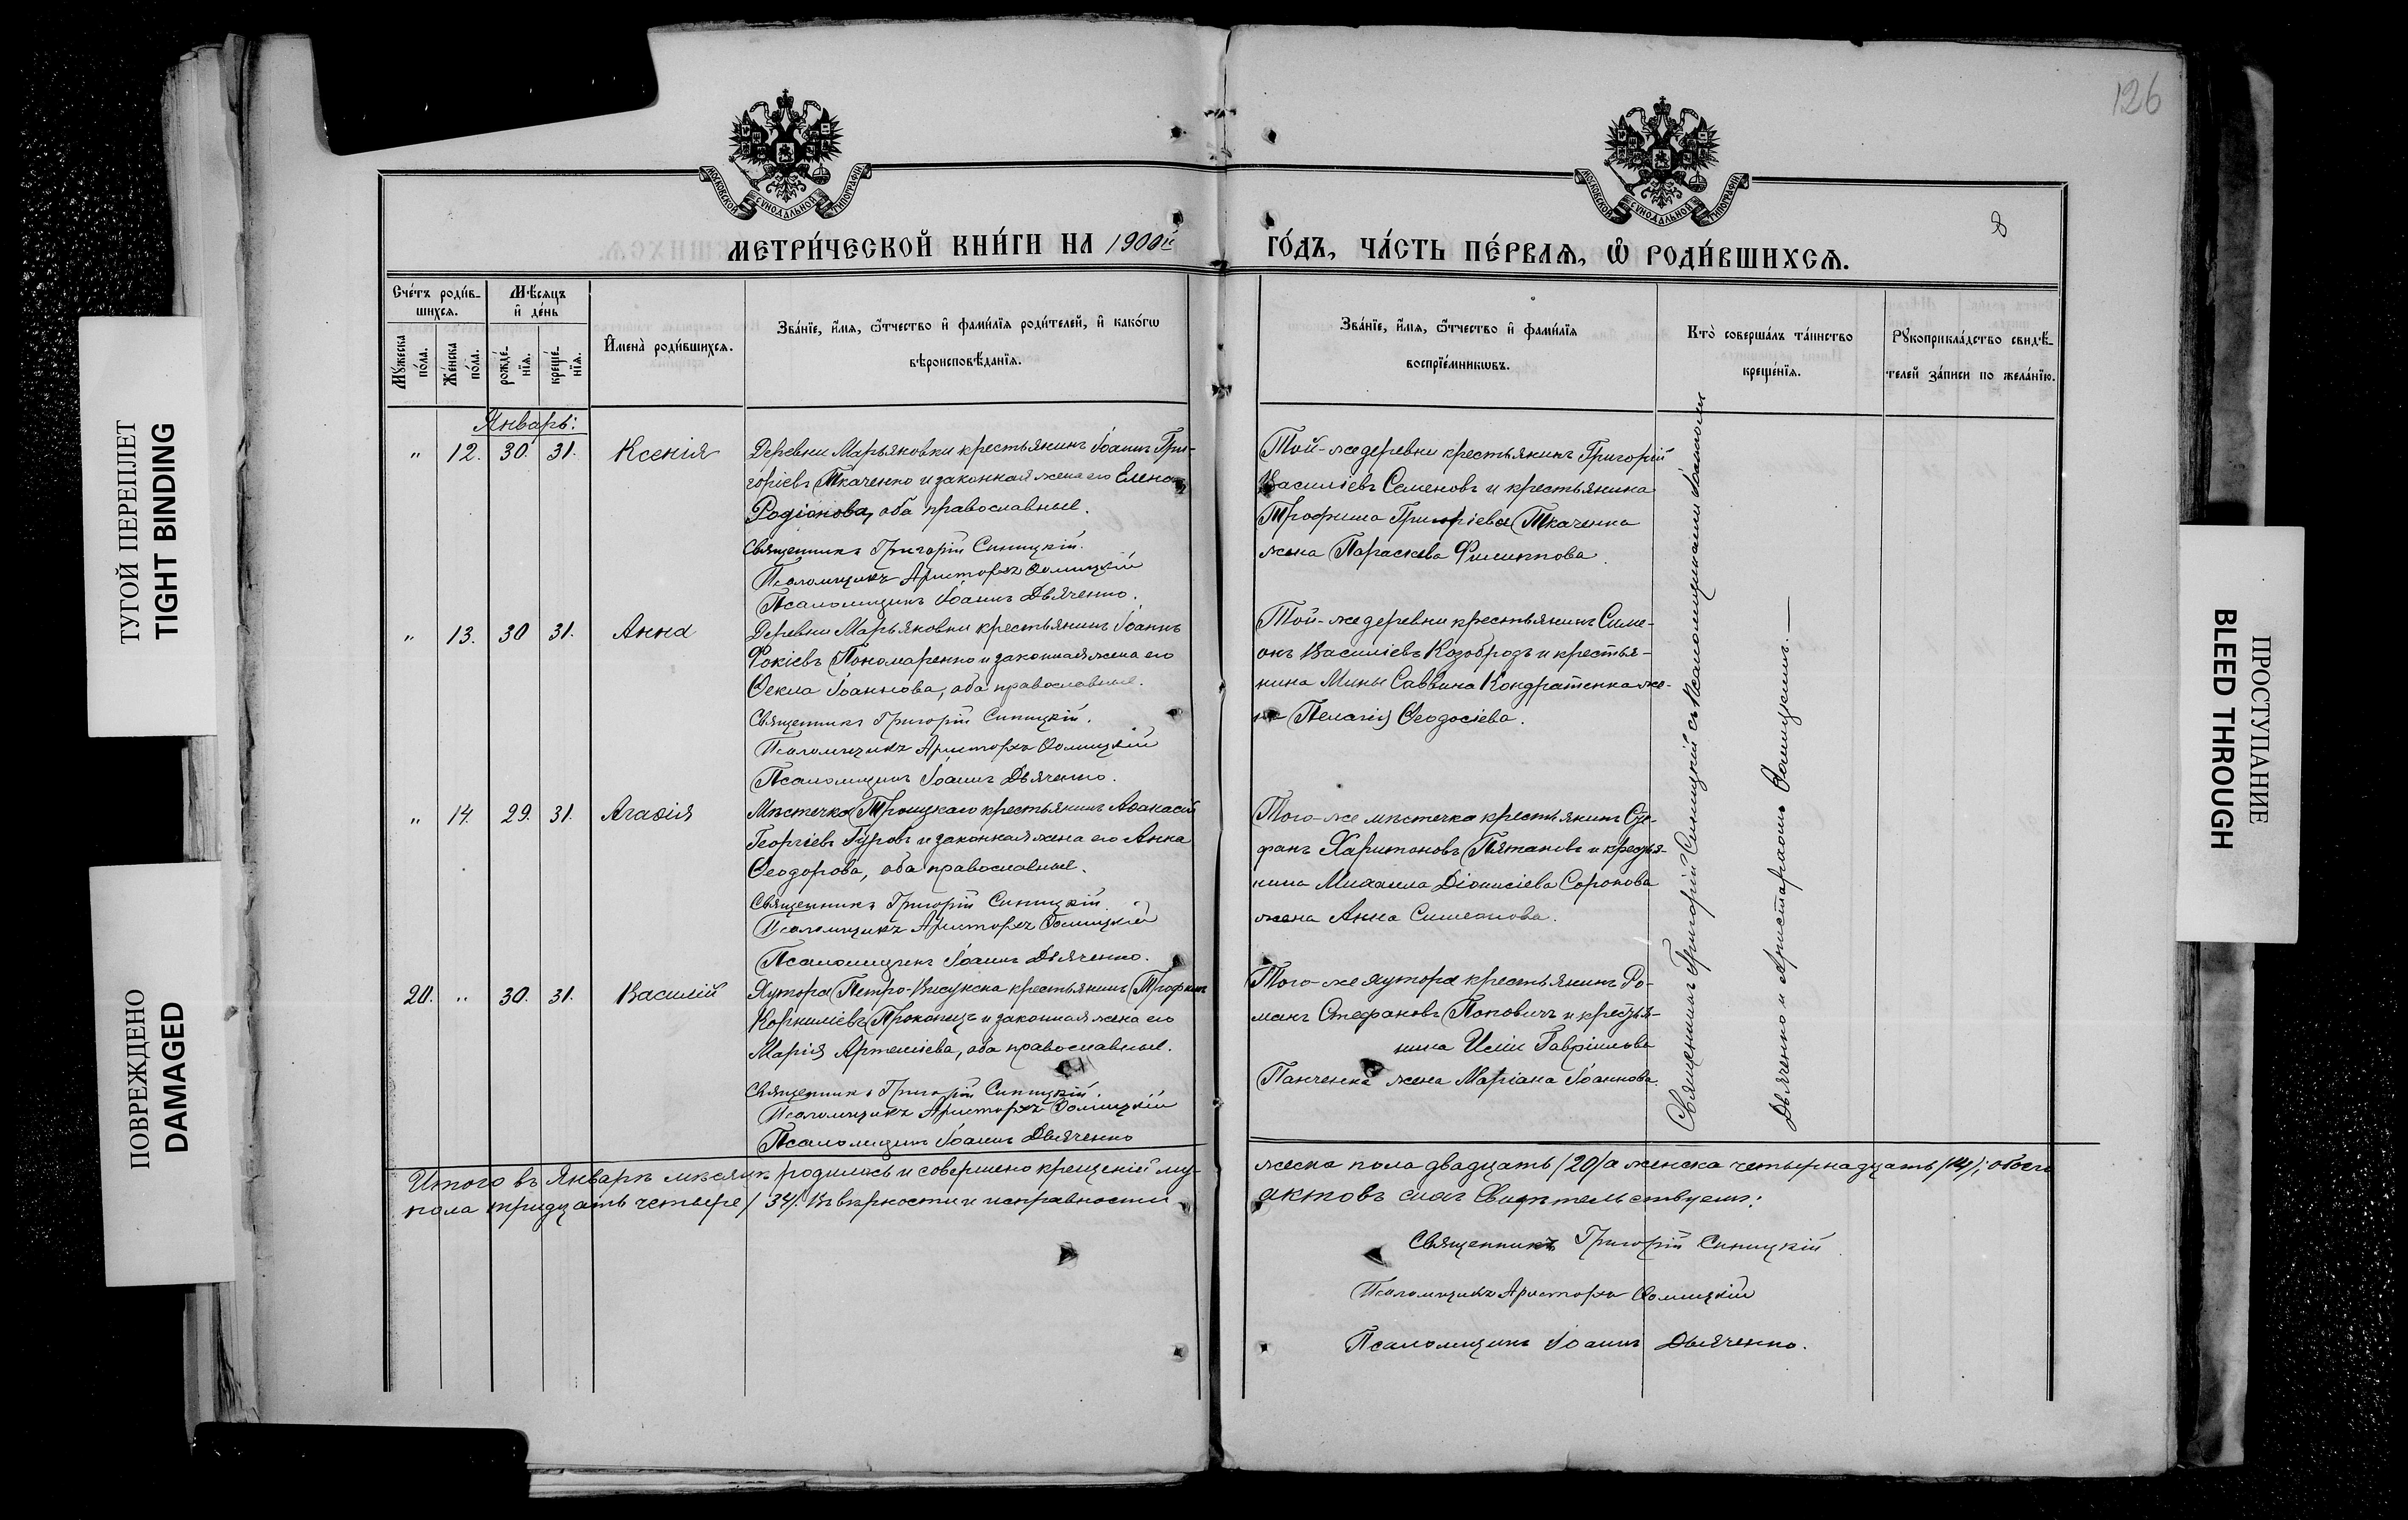 126
8
МОСКОВСКОЙ СѴНОДАЛЬНОЙ ТИПОГРАФІИ
МОСКОВСКОЙ СѴНОДАЛЬНОЙ ТИПОГРАФІИ
МЕТРИ́ЧЕСКОЙ КНИ́ГИ НА 1900й
ГО́ДЪ, ЧА́СТЬ ПЕ́РВАѦ, Ѡ҆ РОДИ́ВШИХСѦ.
Сче́тъ роди́в-
шихсѧ.
Мꙋ́жеска по́ла.
Же́нска по́ла.
Мѣ́сѧцъ
и҆ де́нь
рожде́-
нїѧ.
креще́-
нїѧ.
И҆мена̀ роди́вшихсѧ.
Зва́нїе, и҆́мѧ, ѻ҆́тчество и҆ фами́лїѧ роди́телей, и҆ како́гѡ
вѣроисповѣ́данїѧ.
Зва́нїе, и҆́мѧ, ѻ҆́тчество и҆ фами́лїѧ
воспрїе́мникѡвъ.
Кто̀ соверша́лъ та́инство
креще́нїѧ.
Рꙋкоприкла́дство свидѣ́-
телей за́писи по жела́нїю.
Январь:
" 12. 30. 31. Ксенія
Деревни Марьяновки крестьянинъ Іоаннъ Гри-
горіевъ Ткаченко и законная жена его Елена
Родіонова, оба православные.
Священникъ Григорій Синицкій.
Псаломщикъ Аристархъ Ѳомицкій
Псаломщикъ Іоаннъ Дьяченко.
Той-же деревни крестьянинъ Григорій
Василіевъ Семеновъ и крестьянина
Трофима Григоріева Ткаченка
жена Параскева Филиппова.
" 13. 30 31. Анна
Деревни Марьяновки крестьянинъ Іоаннъ
Фокіевъ Пономаренко и законная жена его
Ѳекла Іоаннова, оба православные.
Священникъ Григорій Синицкій.
Псаломщикъ Аристархъ Ѳомицкій
Псаломщикъ Іоаннъ Дьяченко.
Той-же деревни крестьянинъ Симе-
онъ Василіевъ Козобродъ и крестья-
нина Мины Саввина Кондратенка же-
на Пелагія Ѳеодосіева.
" 14. 29. 31. Агаѳія
Мѣстечка Троицкаго крестьянинъ Аѳанасій
Георгіевъ Гуровъ и законная жена его Анна
Ѳеодорова, оба православные.
Священникъ Григорій Синицкій.
Псаломщикъ Аристархъ Ѳомицкій
Псаломщикъ Іоаннъ Дьяченко.
Того-же мѣстечка крестьянинъ Сте-
фанъ Харитоновъ и крестья-
нина Михаила Діонисіева Сорокова
жена Анна Симеонова.
20. " 30. 31. Василій
Хутора Петро-Висунска крестьянинъ Трофимъ
Корниліевъ Прокопецъ и законная жена его
Марія Артеміева, оба православные.
Священникъ Григорій Синицкій.
Псаломщикъ Аристархъ Ѳомицкій
Псаломщикъ Іоаннъ Дьяченко
Того-же хутора крестьянинъ Ро-
манъ Стефановъ Поповичъ и крестья-
нина Иліи Гавріилова
Панченка жена Маріана Іоаннова.
Священникъ Григорій Синицкій съ псаломщиками Іоанномъ
Дьяченко и Аристархомъ Ѳомицкимъ.
Итого въ Январѣ мѣсяцѣ родилось и совершено крещеній му-
жеска пола двадцать /20/ а женска четырнадцать /14/; обоего
пола тридцать четыре /34/. Въ вѣрности и исправности
актовъ сихъ свидѣтельствуемъ:
Священникъ Григорій Синицкій.
Псаломщикъ Аристархъ Ѳомицкій
Псаломщикъ Іоаннъ Дьяченко.
ТУГОЙ ПЕРЕПЛЕТ
TIGHT BINDING
ПОВРЕЖДЕНО
DAMAGED
ПРОСТУПАНИЕ
BLEED THROUGH